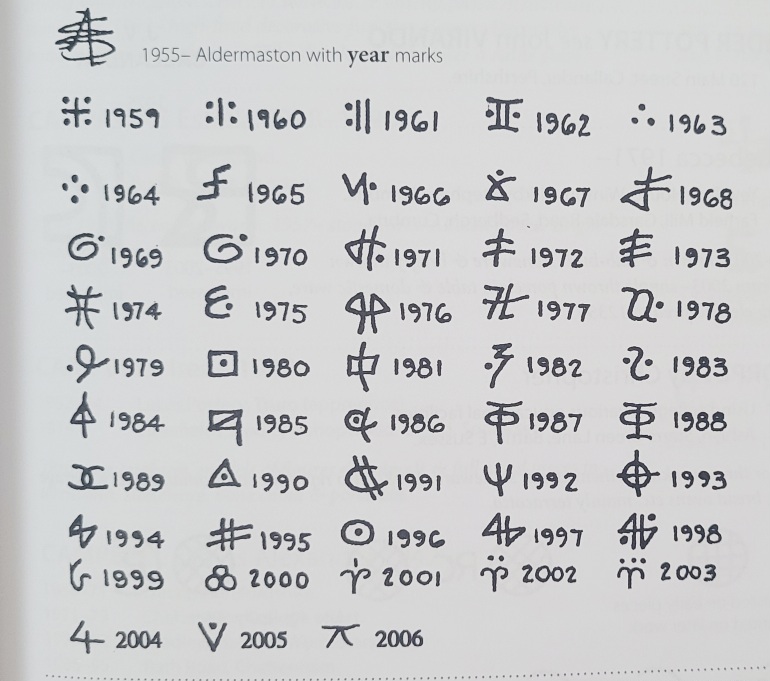 1955– Aldermaston with year marks
1959 1960 1961 1962 1963
1964 1965 1966 1967 1968
1969 1970 1971 1972 1973
1974 1975 1976 1977 1978
1979 1980 1981 1982 1983
1984 1985 1986 1987 1988
1989 1990 1991 1992 1993
1994 1995 1996 1997 1998
1999 2000 2001 2002 2003
2004 2005 2006